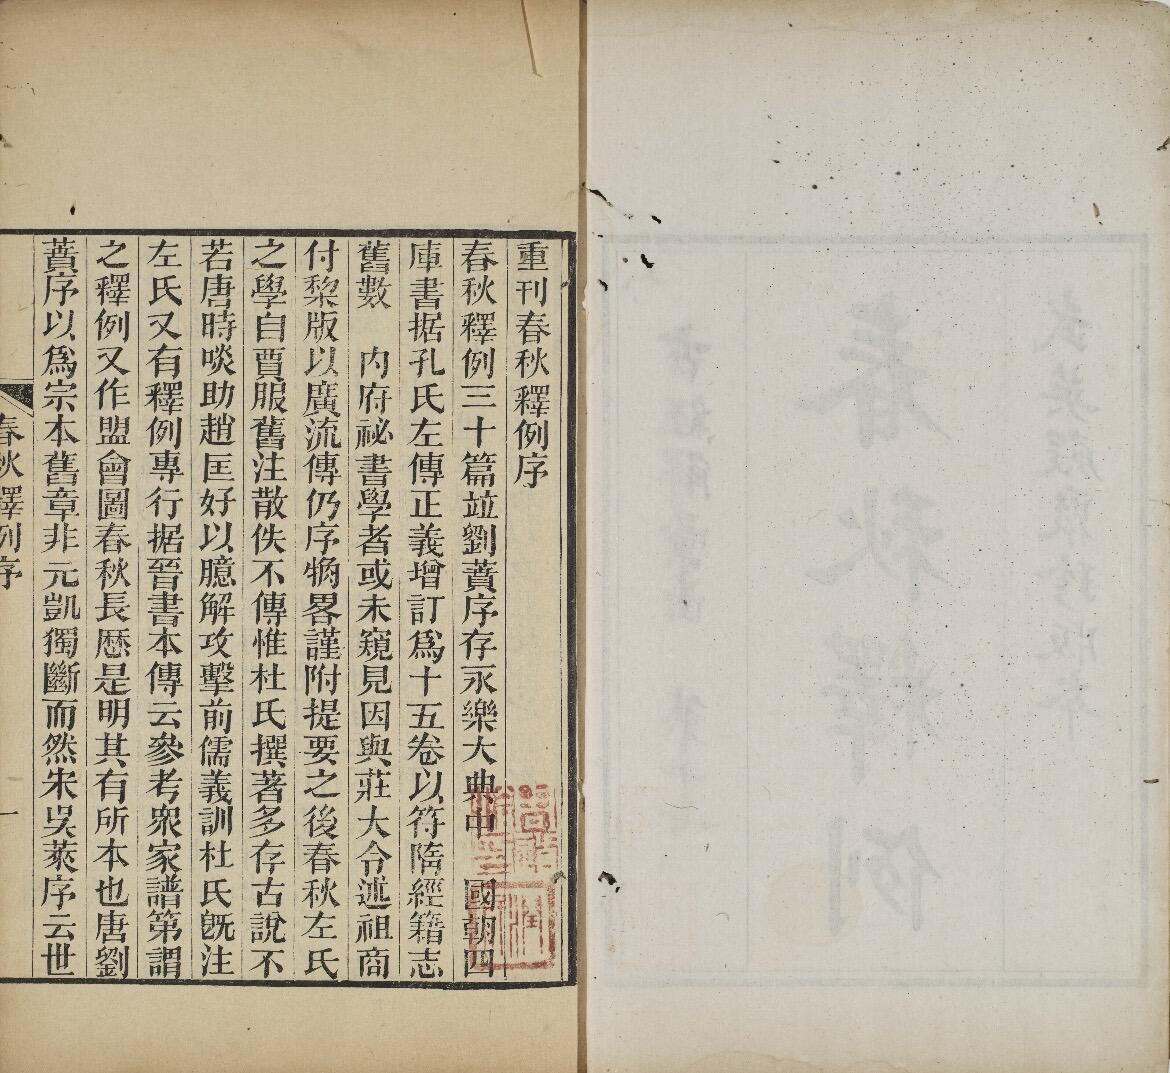 重刊春秋釋例序
春秋釋例三十篇竝劉蕡序存永樂大典中　國朝四
庫書据孔氏左傳正義增訂爲十五卷以符隋經籍志
舊數　內府祕書學者或未窺見因與莊大令述祖商
付棃版以廣流傳仍序㮣畧謹附提要之後春秋左氏
之學自賈服舊注散佚不傳惟杜氏撰著多存古說不
若唐時啖助趙匡好以臆解攻擊前儒義訓杜氏旣注
左氏又有釋例專行据晉書本傳云參考衆家譜第謂
之釋例又作盟會圖春秋長厯是明其有所本也唐劉
蕡序以爲宗本舊章非元凱獨斷而然朱吳萊序云世
春秋釋例序
一
武英殿聚珍版本
春秋釋例